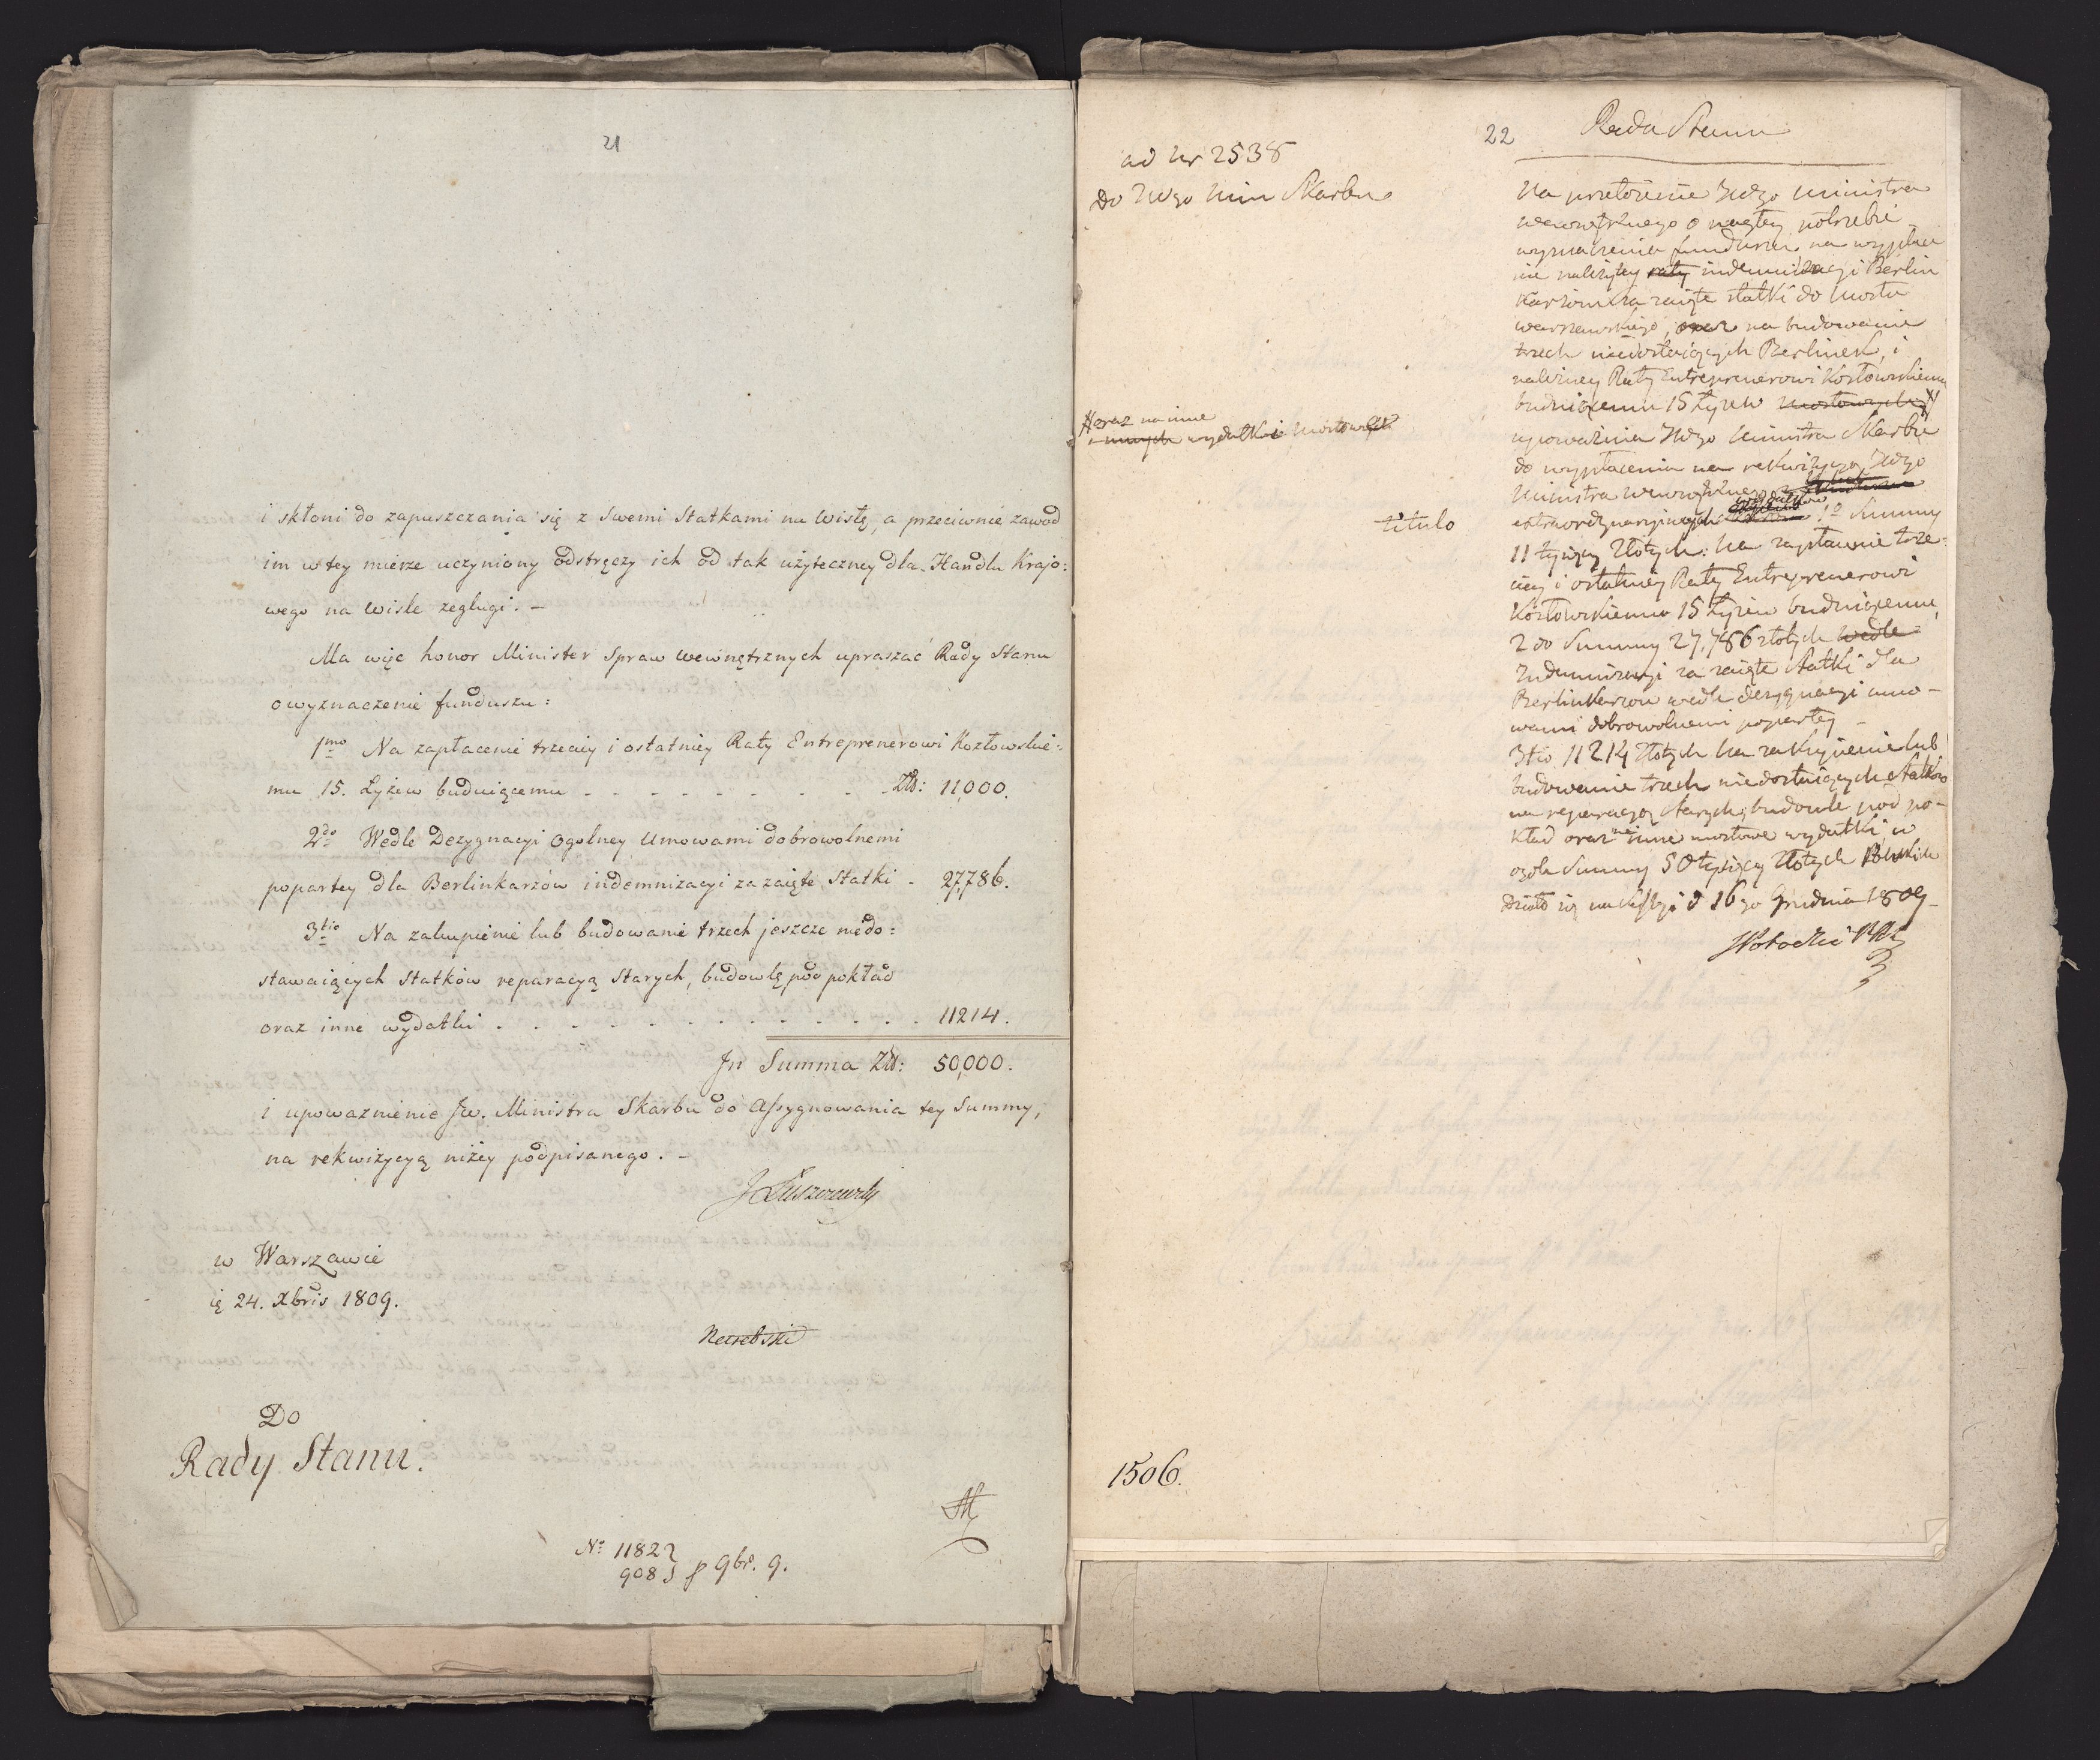 21
i skłoni do zapuszczania się z swemi Statkami na Wisłę, a przeciwnie zawod
im w tey mierze uczyniony odstręczy ich od tak użyteczney dla Handlu Krajo:
wego na Wisle zeglugi. –
Ma więc honor Minister Spraw Wewnętrznych upraszać Rady Stanu
o wyznaczenie funduszu:
1mo Na zapłacenie trzeciey i ostatniey Raty Entreprenerowi Kozłowskie:
mu 15. Łyżew buduiącemu - - - - - - - - - Zł: 11,000.
2do Wedle Dezygnacyi ogolney Umowami dobrowolnemi
popartey dla Berlinkarzów indemnizacyi za zaięte Statki - 27,786.
3tio Na zakupienie lub budowanie trzech jeszcze niedo:
stawaiących Statków reparacyą Starych, budowlę pod pokład
oraz inne wydatki - - - - - - - - - - - - 11214.
Jn Summa Zł: 50,000.
i upowaznienie Jw. Ministra Skarbu do Assygnowania tey Summy,
na rekwizycyą niżey podpisanego. –
J Łuszczewski
w Warszawie
24. Xbris 1809.
Do
Rady Stanu.
No 1182
908 9br. 9.
22
Rada Stanu
ad Nr 2538
Do JWgo Min Skarbu
Na przełożenie JWgo Ministra
wewnętrznego o nagłey potrzebie
wyznaczenia funduszu na wypłace
nie należytey raty indemnizacyi Berlin
karzom za zaięte statki do Mostu
warszawskiego, oraz na budowanie
trzech niedostaiących Berlinek, i
należney Raty Entreprenerowi Kozłowskiemu
buduiącemu 15 Łyżew mostowych
oraz na inne
innych wydatki mostowe
upoważnia JWgo Ministra Skarbu
do wypłacenia na rekwizycyą JWgo
Ministra wewnętrznego
titulo
extraordynaryinych wydatków 1o Summy
11 tysięcy Złotych. Na zapłacenie trze-
ciey i ostatniey Raty Entreprenerowi
Kozłowskiemu 15 Łyżew buduiącemu,
2do Summy 27,786 złotych wedle
Indemnizacyi za zaięte statki dla
Berlinkarzow wedle dezygnacyi umo-
wami dobrowolnemi popartey –
3tio 11214 Złotych Na zakupienie lub
budowanie trzech niedostaiących Statków
na reparacyą starych, budowle pod po-
kład oraz na inne mostowe wydatki w
ogole Summy 50 tysięcy Złotych Polskich
Działo się na Sessyi d 16go Grudnia 1809
SPotocki PR
1506.